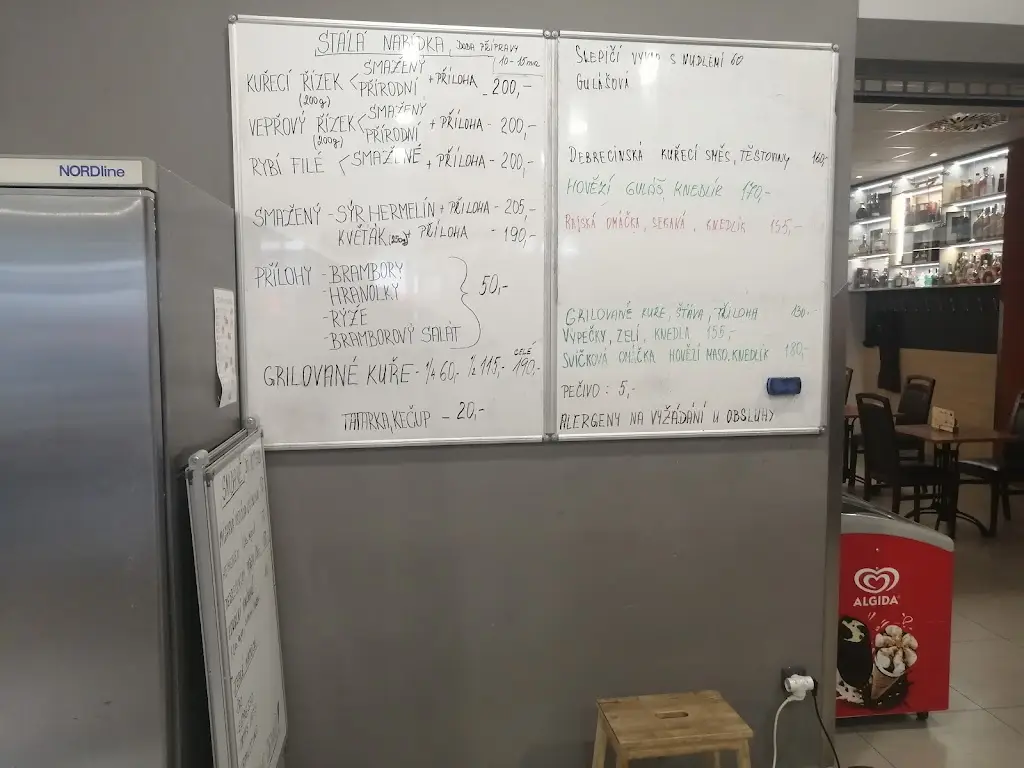 NORDline
STÁLÁ NABÍDKA, DOBA PŘÍPRAVY
10-15 min
KUŘECÍ ŘÍZEK < SMAŽENÝ
PŘÍRODNÍ + PŘÍLOHA - 200,-
(200g)
VEPŘOVÝ ŘÍZEK < SMAŽENÝ
PŘÍRODNÍ + PŘÍLOHA - 200,-
(200g)
RYBÍ FILÉ < SMAŽENÉ + PŘÍLOHA - 200,-
SMAŽENÝ - SÝR HERMELÍN + PŘÍLOHA - 205,-
KVĚTÁK + PŘÍLOHA - 190,-
PŘÍLOHY - BRAMBORY
- HRANOLKY
- RÝŽE
- BRAMBOROVÝ SALÁT
50,-
GRILOVANÉ KUŘE - 1/4 60,- 1/2 115,- CELÉ 190,-
TATARKA, KEČUP - 20,-
SLEPIČÍ VÝVAR S NUDLEMI 60
GULÁŠOVÁ
DEBRECÍNSKÁ KUŘECÍ SMĚS, TĚSTOVINY 160,-
HOVĚZÍ GULÁŠ, KNEDLÍK 170,-
RAJSKÁ OMÁČKA, SEKANÁ, KNEDLÍK 155,-
GRILOVANÉ KUŘE, ŠŤÁVA, PŘÍLOHA 130,-
VÝPEČKY, ZELÍ, KNEDLÍ 155,-
SVÍČKOVÁ OMÁČKA HOVĚZÍ MASO, KNEDLÍK 180,-
PEČIVO: 5,-
ALERGENY NA VYŽÁDÁNÍ U OBSLUHY
ALGIDA